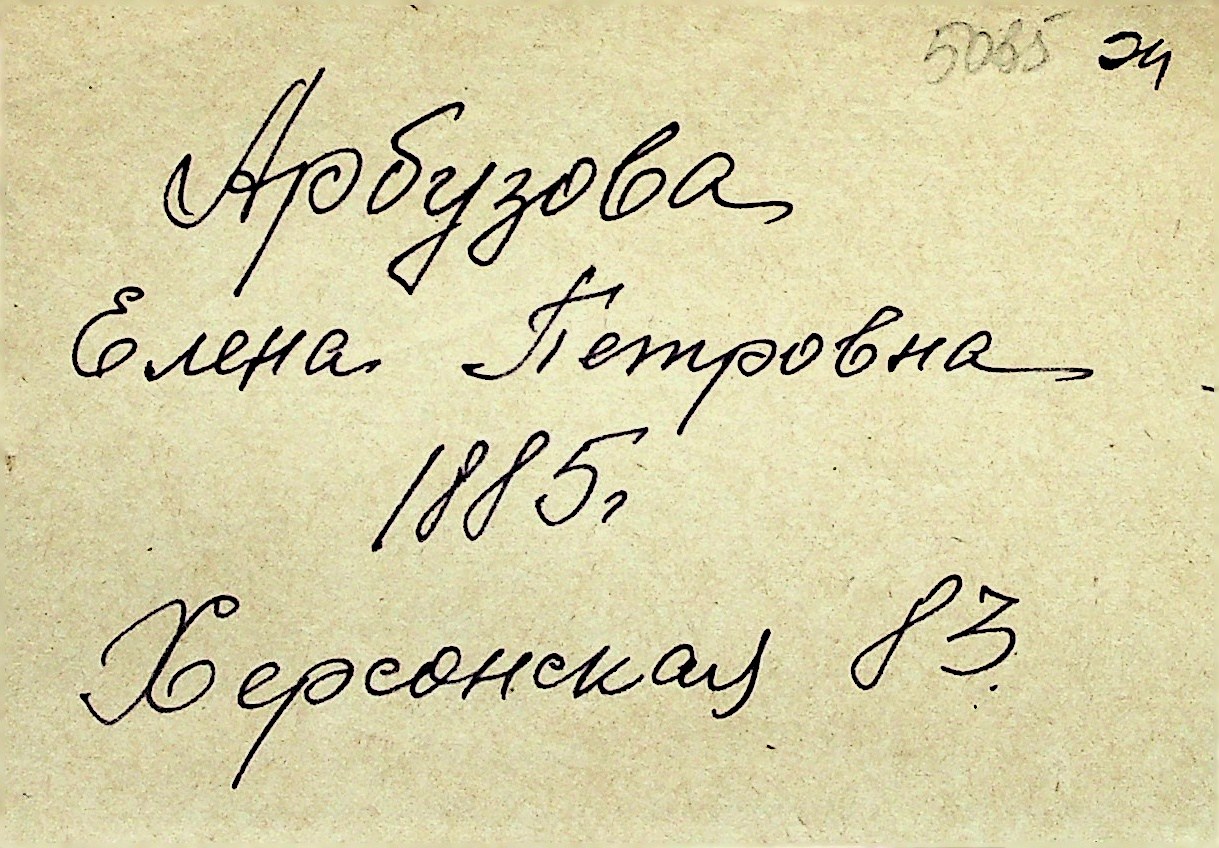 5085
Арбузова
Елена Петровна
1885г
Херсонская 83.